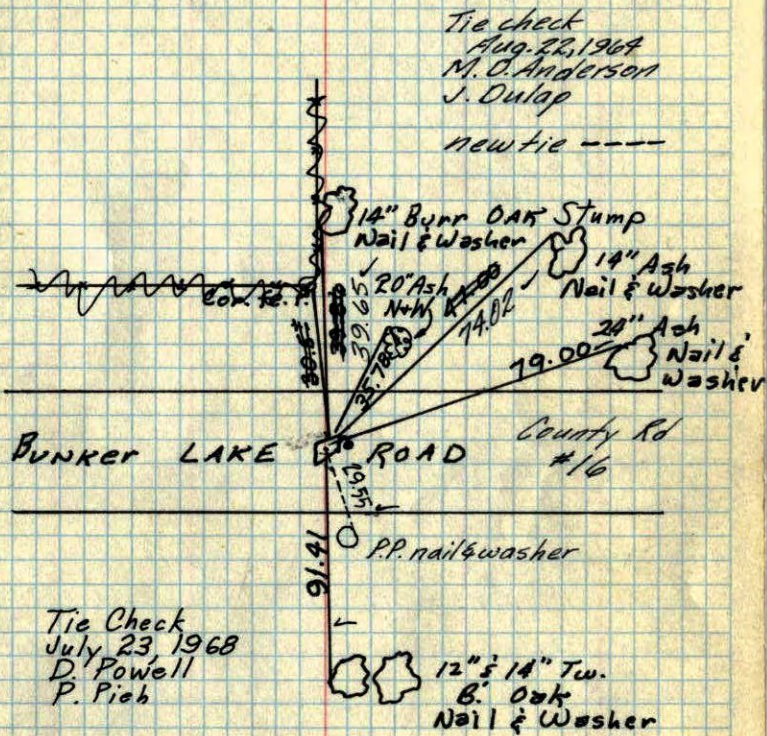 Tie check
Aug. 22, 1964
M.O. Anderson
J. Dulap
new tie ----
14" Burr OAK Stump
Nail & Washer
14" Ash
Nail & Washer
20" Ash
N+W
Cor. Fe. P.
39.65 ✓
74.02 ✓
35.78
24" Ash
Nail &
Washer
79.00 ✓
BUNKER LAKE ROAD
County Rd
#16
29.55 ✓
P.P. nail & washer
91.41 ✓
Tie Check
July 23, 1968
D. Powell
P. Pieh
12" & 14" Tw.
B. Oak
Nail & Washer